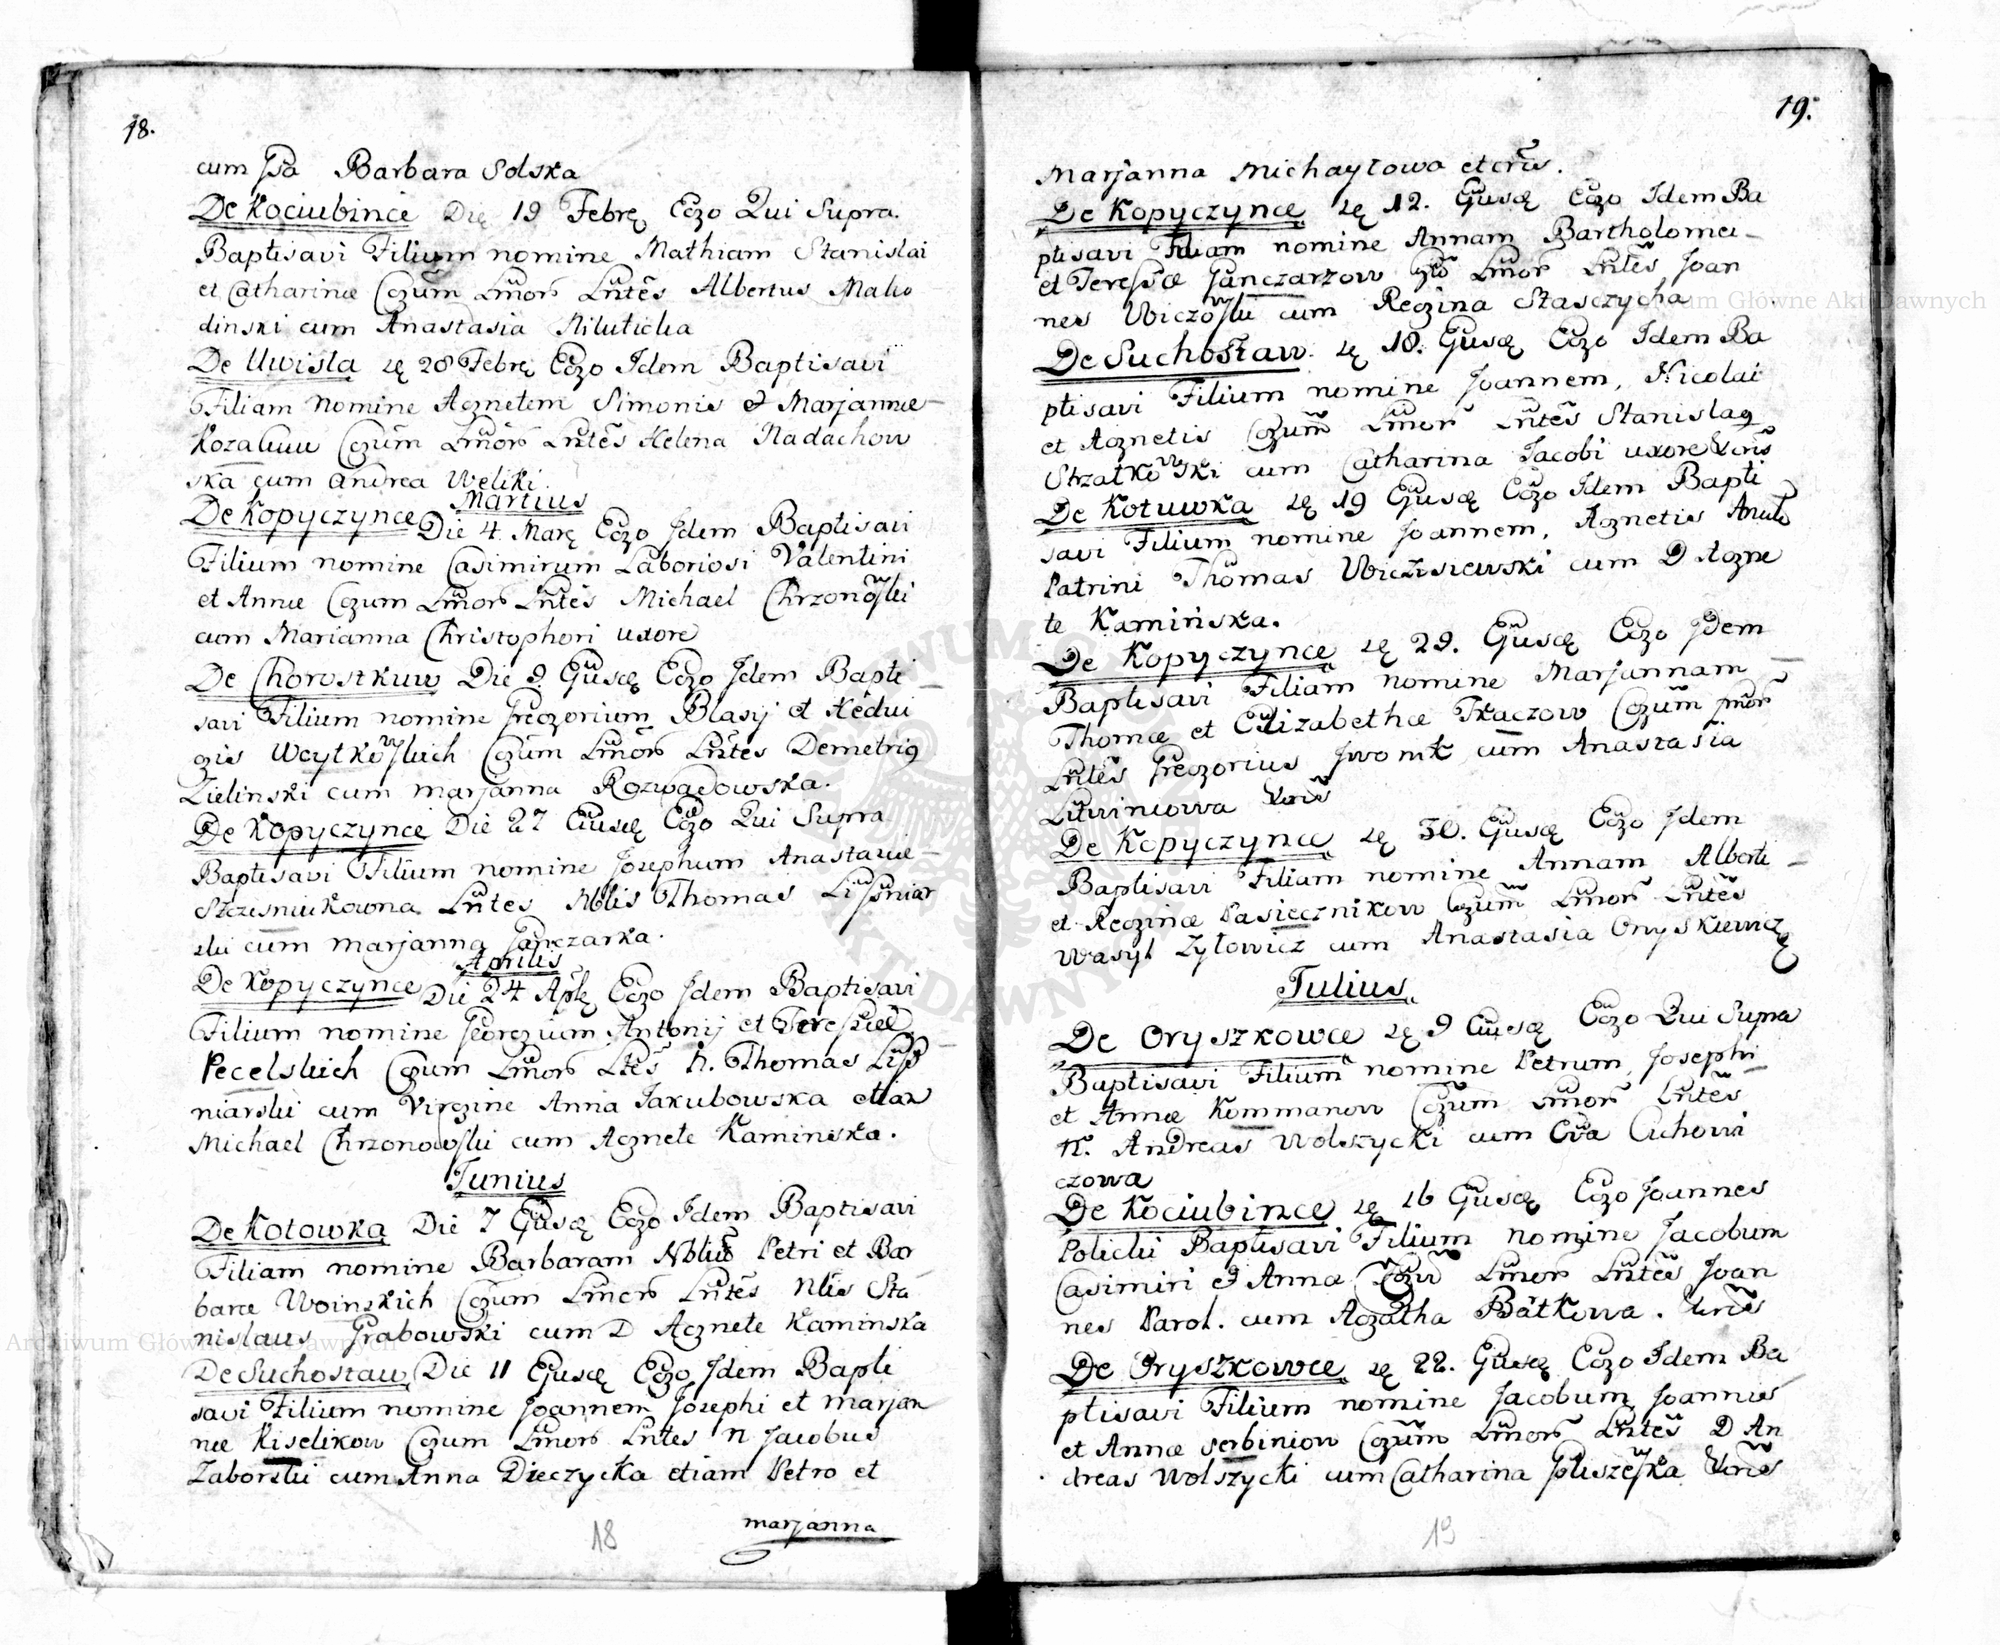 18.
cum Jsa Barbara Solska
De Kociubince Die 19 Febrę Ego Qui Supra
Baptisavi Filium nomine Mathiam Stanislai
et Catharinæ Cgum Lmor Lntes Albertus Malio
dinski cum Anastasia
De Uwisla 28 Febrę Ego Idem Baptisavi
Filiam Nomine Agnetem Simonis & Marjannæ
Kozaluw Cgum Lmor Lntes Helena Radachow
ska cum Andrea Weliki.
Martius
De Kopyczynce Die 4 Marę Ego Jdem Baptisavi
Filium nomine Casimirum Laboriosi Valentini
et Annæ Cgum Lmor Lntes Michael Chrzonowski
cum Marianna Christophori uxore
De Chorostkuw Die 9 Ejusdę Ego Jdem Bapti
savi Filium nomine Gregorium Blasij et Hedui
gis Cgum Lmor Lntes Demetrig
Zielinski cum Marjanna Rozwadowska.
De Kopyczynce Die 27 Ejusdę Ego Qui Supra
Baptisavi Filium nomine Josephum Anastasiæ
Szczesniukowna Lntes Nblis Thomas Lissniar
ski cum Marjanna Ganczarka.
Aprilis
De Kopyczynce Die 24 Aplę Ego Jdem Baptisavi
Filium nomine Georgium Antonij et Teressiæ
Pecelskich Cgum Lmor Ltes N. Thomas Liss
niarski cum Virgine Anna Jakubowska etiam
Michael Chrzonowski cum Agnete Kaminska.
Junius
De Kotowka Die 7 Ejusdę Ego Idem Baptisavi
Filiam nomine Barbaram Nblis Petri et Bar
baræ Woinskich Cgum Lmor Lntes Nlis Sta
nislaus Grabowski cum D Agnete Kaminska
De Suchostaw Die 11 Ejusdę Ego Jdem Bapti
savi Filium nomine Joannem Josephi et Marjan
næ Kiselikow Cgum Lmor Lntes N Jacobus
Zaborski cum Anna Dieczycka etiam Petro et
Marjanna
18
19.
Marjanna Michayłowa et
De Kopyczynce 12. Ejusdę Ego Idem Ba
ptisavi Filiam nomine Annam Bartholomei
et Teressæ Ganczarzow Lmor Lntes Joan
nes cum Regina Stasczycha
De Suchostaw 18. Ejusdę Ego Idem Ba
ptisavi Filium nomine Joannem, Nicolai
et Agnetis Cgum Lmor Lntes Stanislag
Strzalkowski cum Catharina Jacobi uxore
De Kotuwka 19 Ejusdę Ego Idem Bapti
savi Filium nomine Joannem, Agnetis
Patrini Thomas cum D Agne
te Kamińska.
De Kopyczynce 29. Ejusdę Ego Jdem
Baptisavi Filiam nomine Marjannam
Thomæ et Elizabethæ Tkaczow Cgum
Lntes Gregorius cum Anastasia
Litwiniowa
De Kopyczynce 30. Ejusdę Ego Jdem
Baptisavi Filiam nomine Annam Alberti
et Reginæ Pasiecznikow Cgum Lmor Lntes
Wasyl Zyłowicz cum Anastasia
Julius
De Oryszkowce 9 Ejusdę Ego Qui Supra
Baptisavi Filium nomine Petrum, Josephi
et Annæ Kommanow Cgum Lmor Lntes
N. Andreas Wolszycki cum Eva Cichowi
czowa
De Kociubince 16 Ejusdę Ego Joannes
Policki Baptisavi Filium nomine Jacobum
Casimiri & Anna Lmor Lntes Joan
nes Karol. cum Agatha Bätkowa.
De Oryszkowce 22. Ejusdę Ego Idem Ba
ptisavi Filium nomine Jacobum Joannis
et Annæ Serbiniow Cgum Lmor Lntes D An
dreas Wolszycki cum Catharina
19
Archiwum Główne Akt Dawnych
Archiwum Główne Akt Dawnych
ARCHIWUM GŁÓWNE AKT DAWNYCH